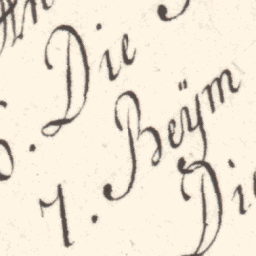 Die
7. Beÿm
Die